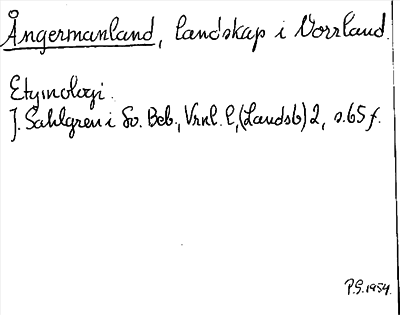 Ångermanland, landskap i Norrland.
Etymologi.
J. Sahlgren i Sv. Beb., Vrnl. l, (Landsb) 2, s. 65 f.
P.G. 1954.